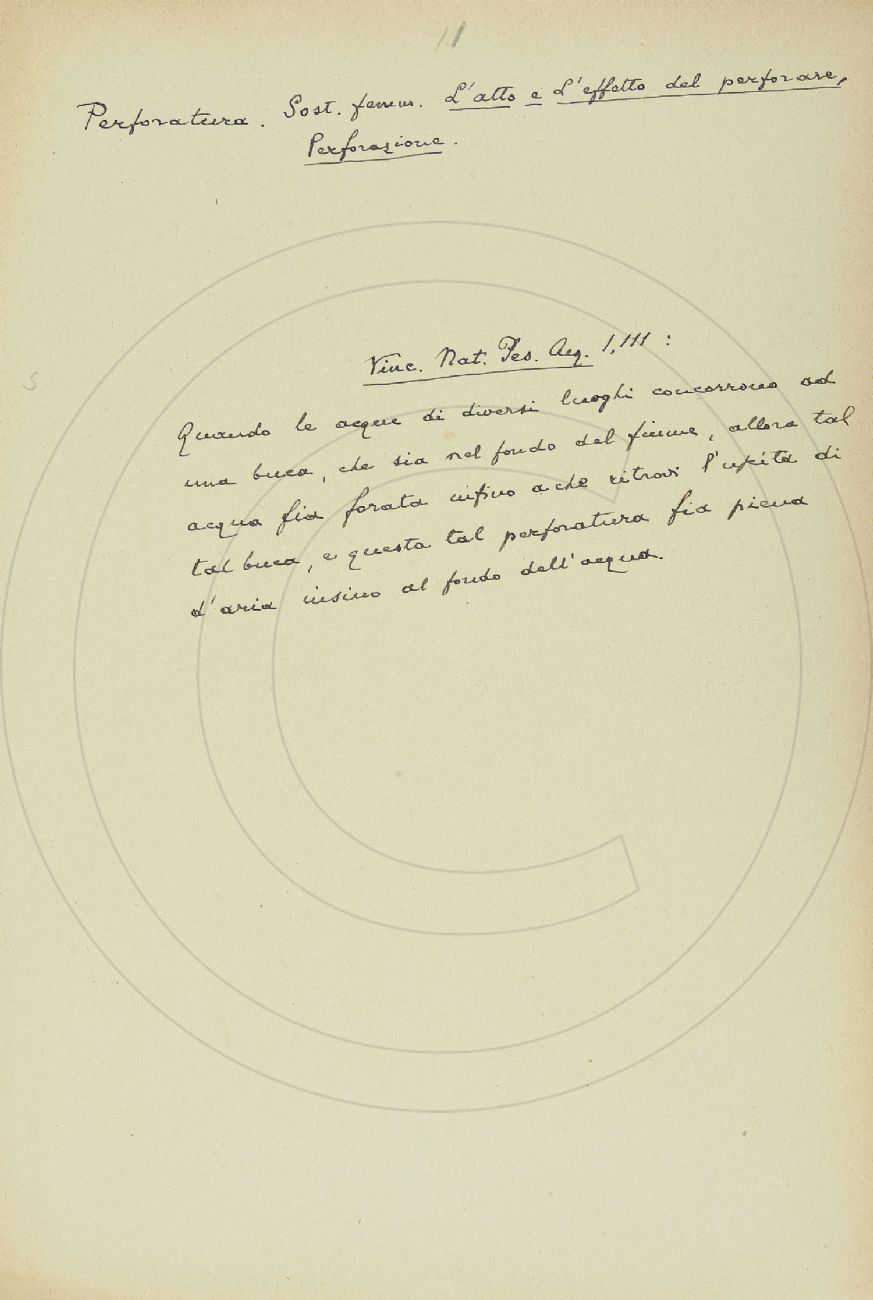 11
Perforatura. Sost. femm. L'atto e L'effetto del perforare,
Perforazione.
Vinc. Nat. Pes. Acq. 1,111:
Quando le acque di diversi luoghi concorrono ad
una buca, che sia nel fondo del fiume, allora tal
acqua fia forata infino a che ritrovi l'uscita di
tal buca, e questa tal perforatura fia piena
d'aria insino al fondo dell'acqua.